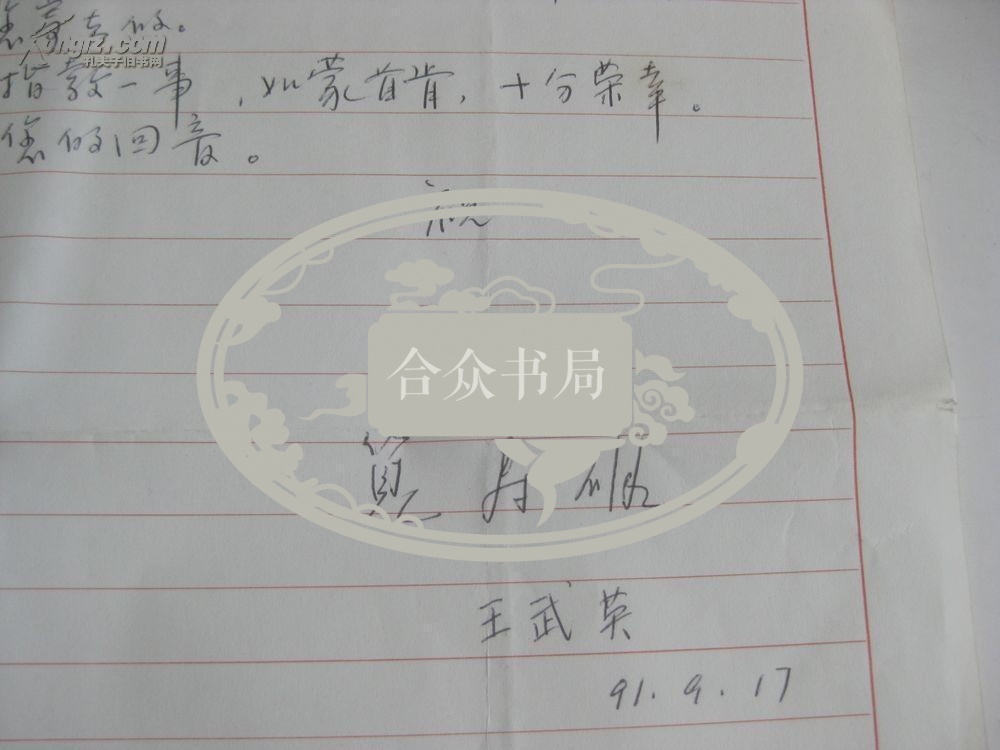 kongfz.com
孔夫子旧书网
指教一事，如蒙首肯，十分荣幸。
您的回音。
祝
合众书局
王武英
91.9.17